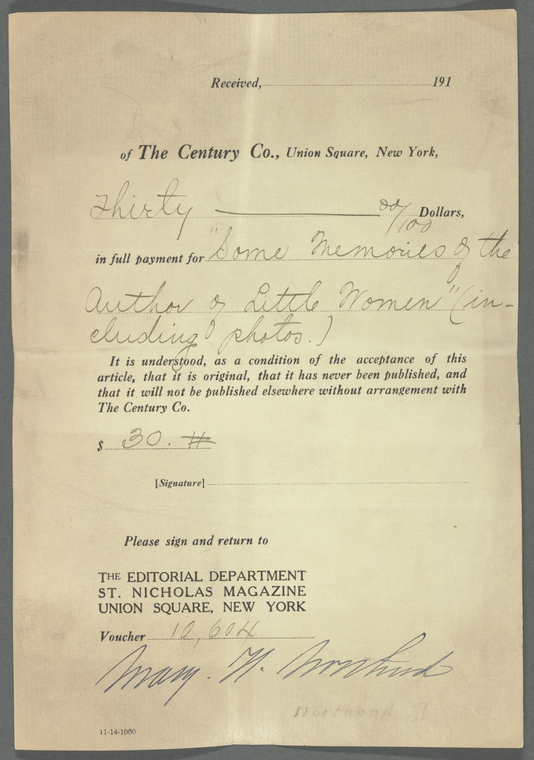 Received, 191
of The Century Co., Union Square, New York,
Thirty 00/100 Dollars,
in full payment for "Some Memories of the
Author of Little Women" (in-
cluding photos.)
It is understood, as a condition of the acceptance of this
article, that it is original, that it has never been published, and
that it will not be published elsewhere without arrangement with
The Century Co.
$ 30.
[Signature]
Please sign and return to
THE EDITORIAL DEPARTMENT
ST. NICHOLAS MAGAZINE
UNION SQUARE, NEW YORK
Voucher 12,604
Mary. N.
11-14-1000